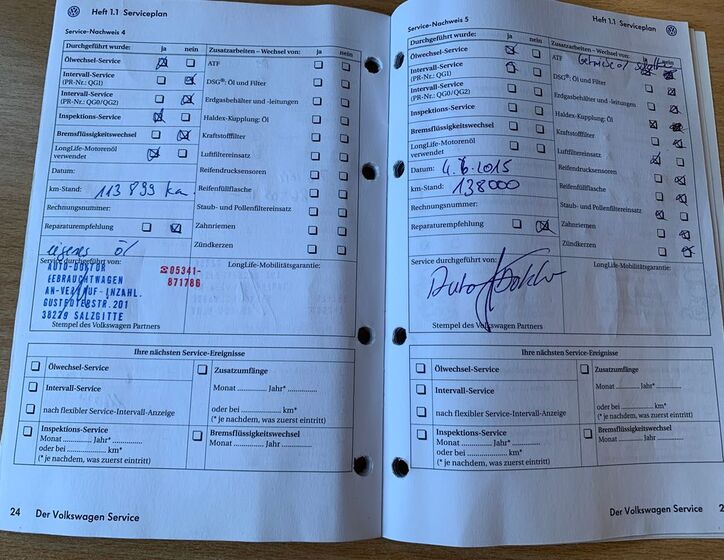 Heft 1.1 Serviceplan
Service-Nachweis 4
Durchgeführt wurde: ja nein
Zusatzarbeiten – Wechsel von: ja nein
Ölwechsel-Service
ATF
Intervall-Service
(PR-Nr.: QG1)
DSG®: Öl und Filter
Intervall-Service
(PR-Nr.: QG0/QG2)
Erdgasbehälter und -leitungen
Inspektions-Service
Haldex-Kupplung: Öl
Bremsflüssigkeitswechsel
Kraftstofffilter
LongLife-Motorenöl
verwendet
Luftfiltereinsatz
Datum:
Reifendrucksensoren
km-Stand: 113 899 km
Reifenfüllflasche
Rechnungsnummer:
Staub- und Pollenfiltereinsatz
Reparaturempfehlung
Zahnriemen
eigenes Öl
Zündkerzen
Service durchgeführt von:
LongLife-Mobilitätsgarantie:
AUTO-DOKTOR
GEBRAUCHTWAGEN
AN-VERKAUF-INZAHL.
38229 SALZGITTE
☎05341-
871786
Stempel des Volkswagen Partners
Ihre nächsten Service-Ereignisse
Ölwechsel-Service
Zusatzumfänge
Monat ........... Jahr* ...............
Intervall-Service
nach flexibler Service-Intervall-Anzeige
oder bei ............... km*
(* je nachdem, was zuerst eintritt)
Inspektions-Service
Monat ............... Jahr* ...............
oder bei ............... km*
(* je nachdem, was zuerst eintritt)
Bremsflüssigkeitswechsel
Monat ........... Jahr ...............
24 Der Volkswagen Service
Heft 1.1 Serviceplan
Service-Nachweis 5
Durchgeführt wurde: ja nein
Zusatzarbeiten – Wechsel von: ja nein
Ölwechsel-Service
ATF Getriebeöl
Intervall-Service
(PR-Nr.: QG1)
DSG®: Öl und Filter
Intervall-Service
(PR-Nr.: QG0/QG2)
Erdgasbehälter und -leitungen
Inspektions-Service
Haldex-Kupplung: Öl
Bremsflüssigkeitswechsel
Kraftstofffilter
LongLife-Motorenöl
verwendet
Luftfiltereinsatz
Datum: 4.6.2015
Reifendrucksensoren
km-Stand: 138000
Reifenfüllflasche
Rechnungsnummer:
Staub- und Pollenfiltereinsatz
Reparaturempfehlung
Zahnriemen
Zündkerzen
Service durchgeführt von:
LongLife-Mobilitätsgarantie:
Auto Doktor
Stempel des Volkswagen Partners
Ihre nächsten Service-Ereignisse
Ölwechsel-Service
Zusatzumfänge
Monat ........... Jahr* ...............
Intervall-Service
nach flexibler Service-Intervall-Anzeige
oder bei ............... km*
(* je nachdem, was zuerst eintritt)
Inspektions-Service
Monat ............... Jahr* ...............
oder bei ............... km*
(* je nachdem, was zuerst eintritt)
Bremsflüssigkeitswechsel
Monat ........... Jahr ...............
Der Volkswagen Service